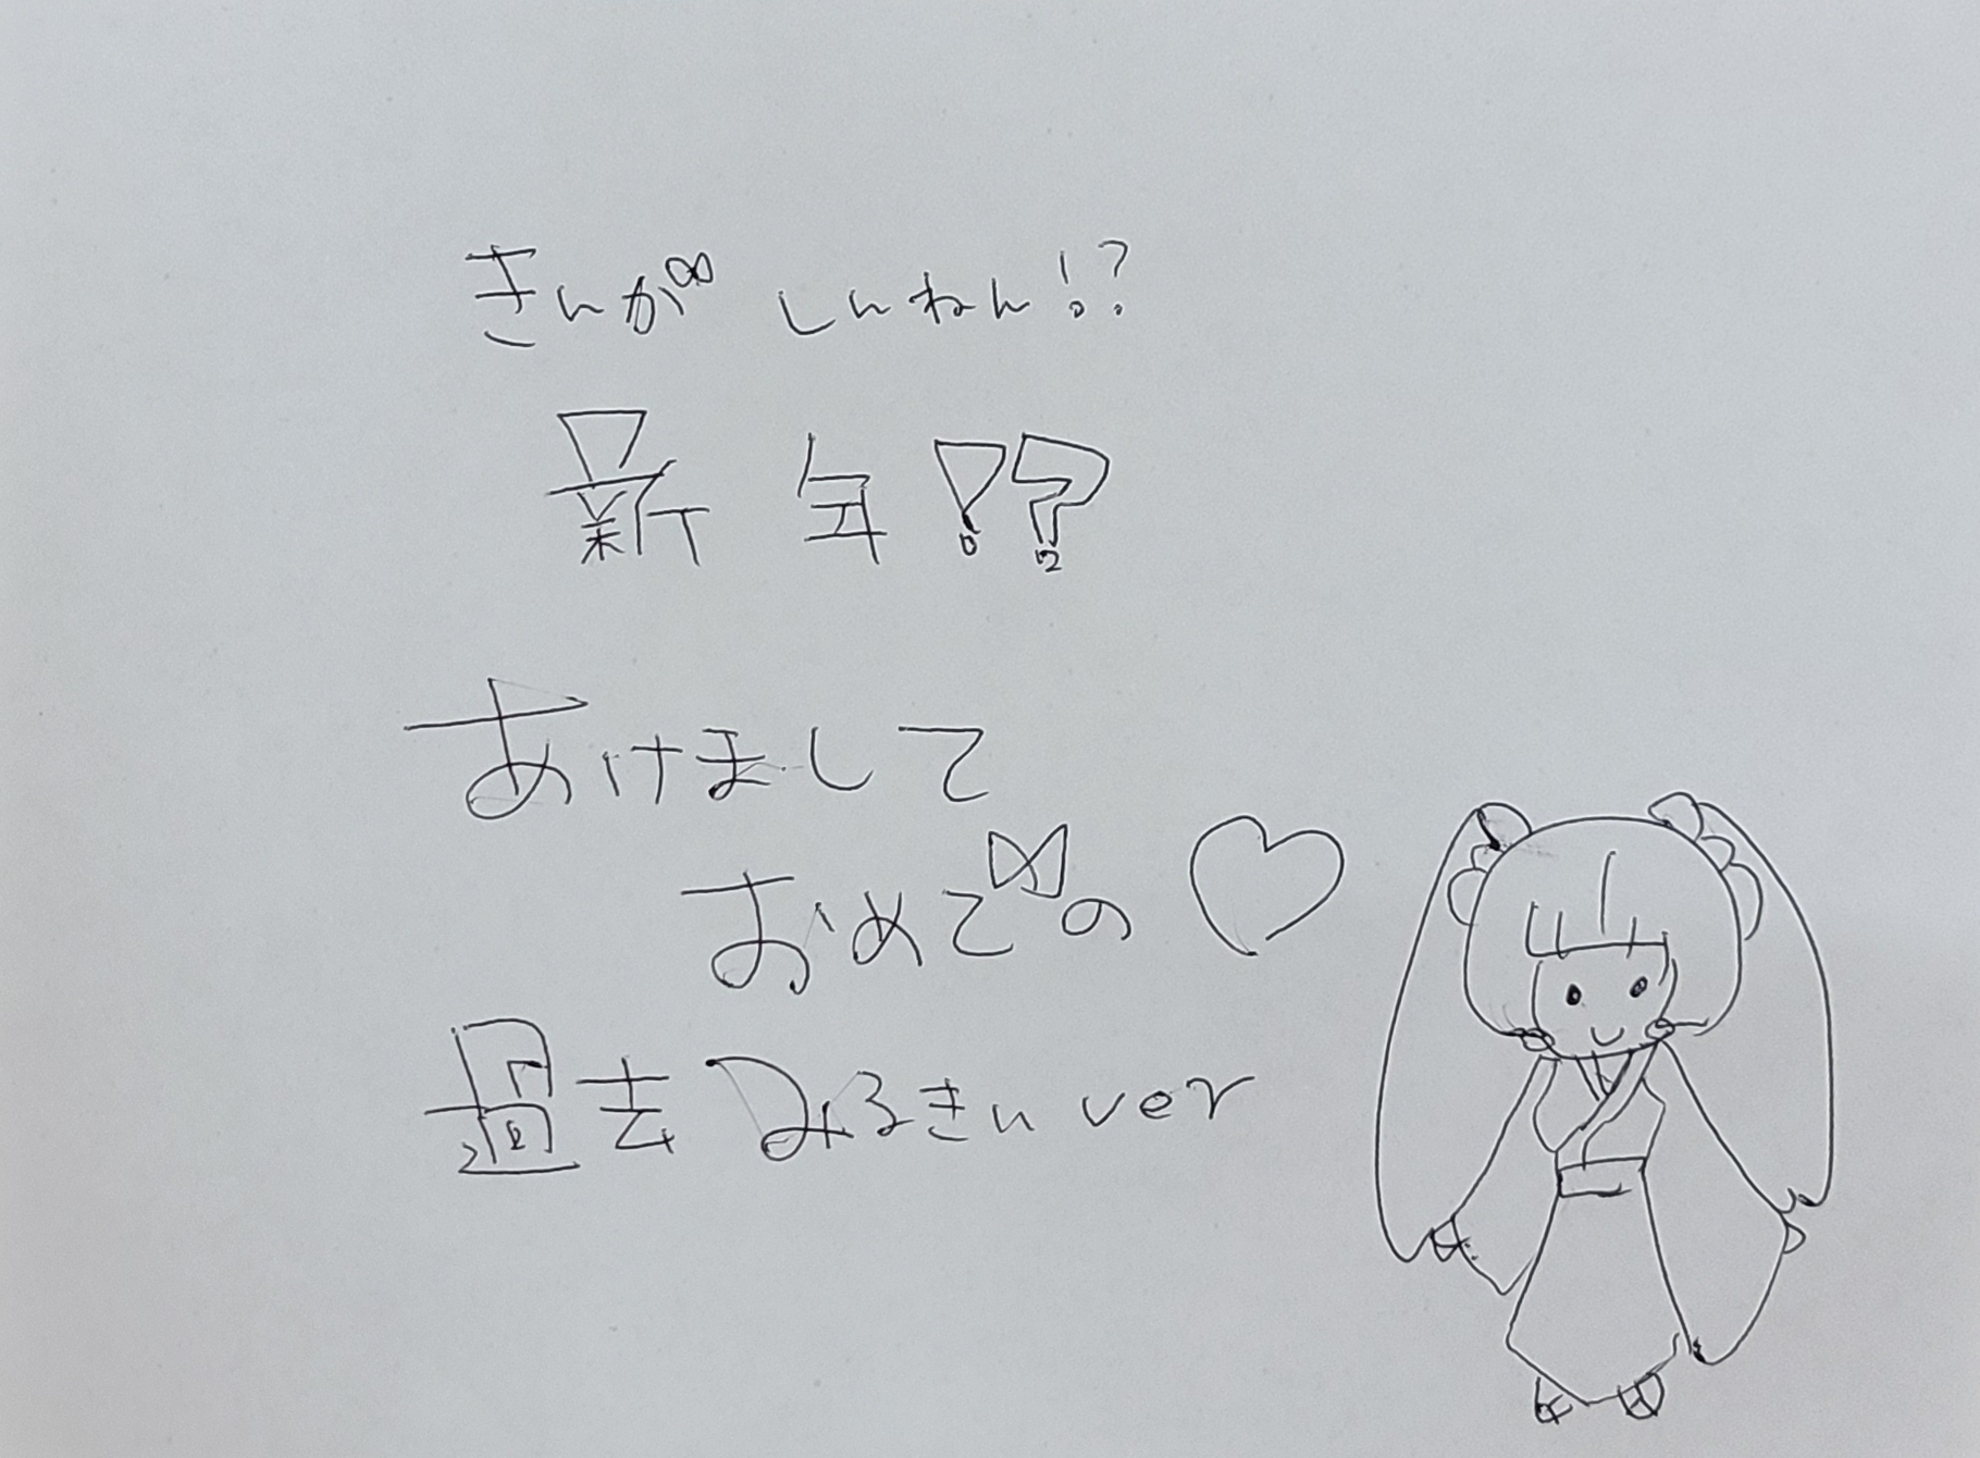 きんが しんねん!?
新年!?
あけまして
おめでの♡
過去みるきぃver